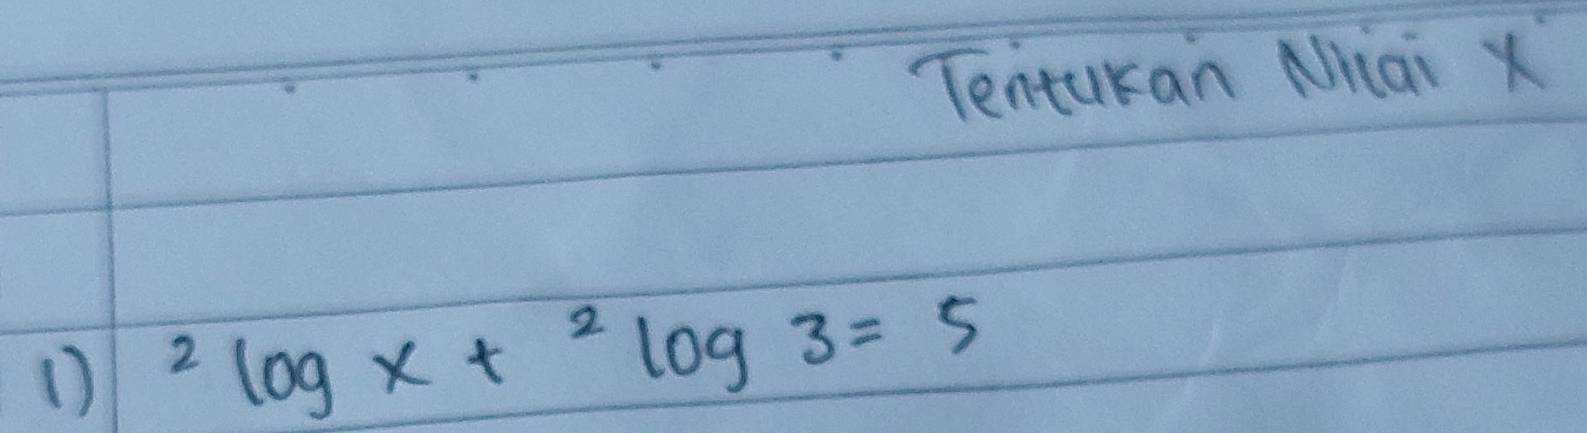 Tentukan Nilai X
1) ² log x + ² log 3 = 5